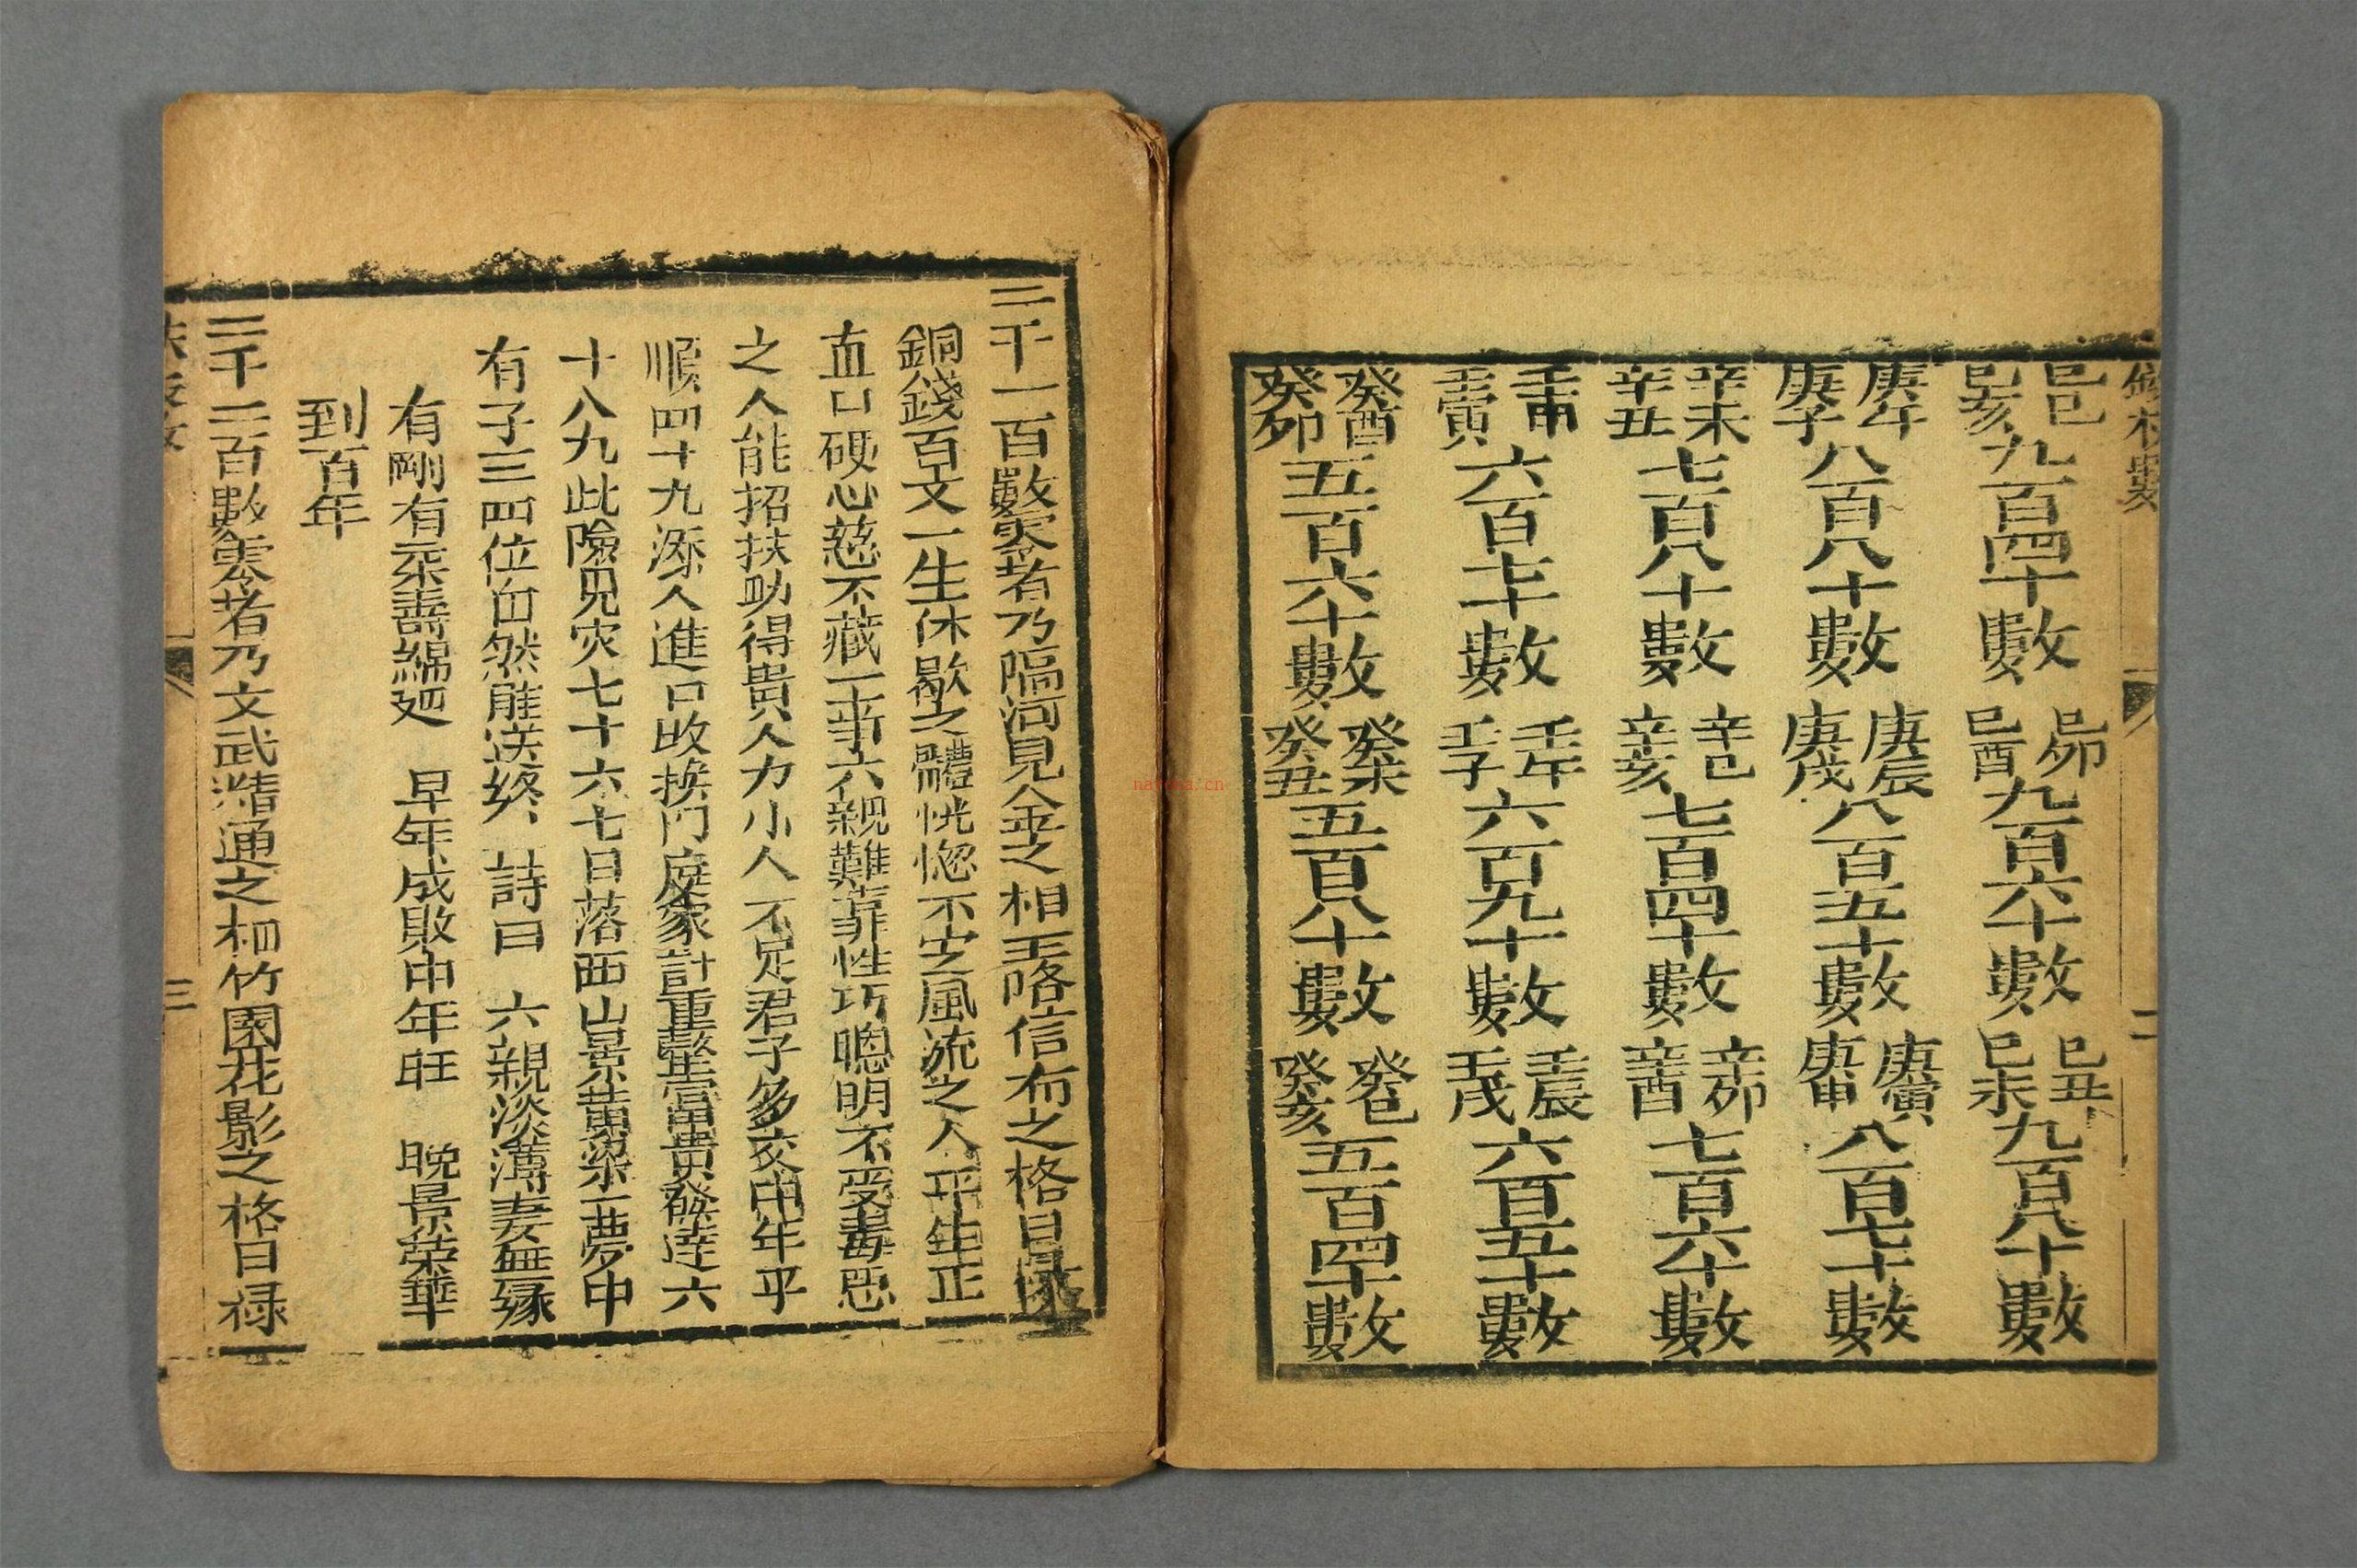 己巳己亥九百四十數 己卯己酉九百六十數 己丑己未九百八十數
庚午庚子八百八十數 庚辰庚戌八百五十數 庚寅庚申八百七十數
辛未辛丑七百八十數 辛巳辛亥七百四十數 辛卯辛酉七百六十數
壬申壬寅六百七十數 壬午壬子六百九十數 壬辰壬戌六百五十數
癸酉癸卯五百六十數 癸未癸丑五百八十數 癸巳癸亥五百四十數
二
二千一百數零者乃隔河見金之相玉咯信布之格日祿
銅錢百文一生休歇之體恍惚不定風流之人平生正
直口硬心慈不藏一事六親難靠性巧聰明不受毒惡
之人能招扶助得貴人力小人不足君子多交中年平
順四十九添人進口改換門庭家計重整富貴發達六
十八九此險見灾七十六七日落西山景黃粱一夢中
有子三四位自然雁送終 詩曰 六親淡薄妻無緣
有剛有柔壽綿廻 早年成敗中年旺 晚景榮華
到百年
二千二百數零者乃文武精通之相竹園花影之格日禄
三
nayona.cn